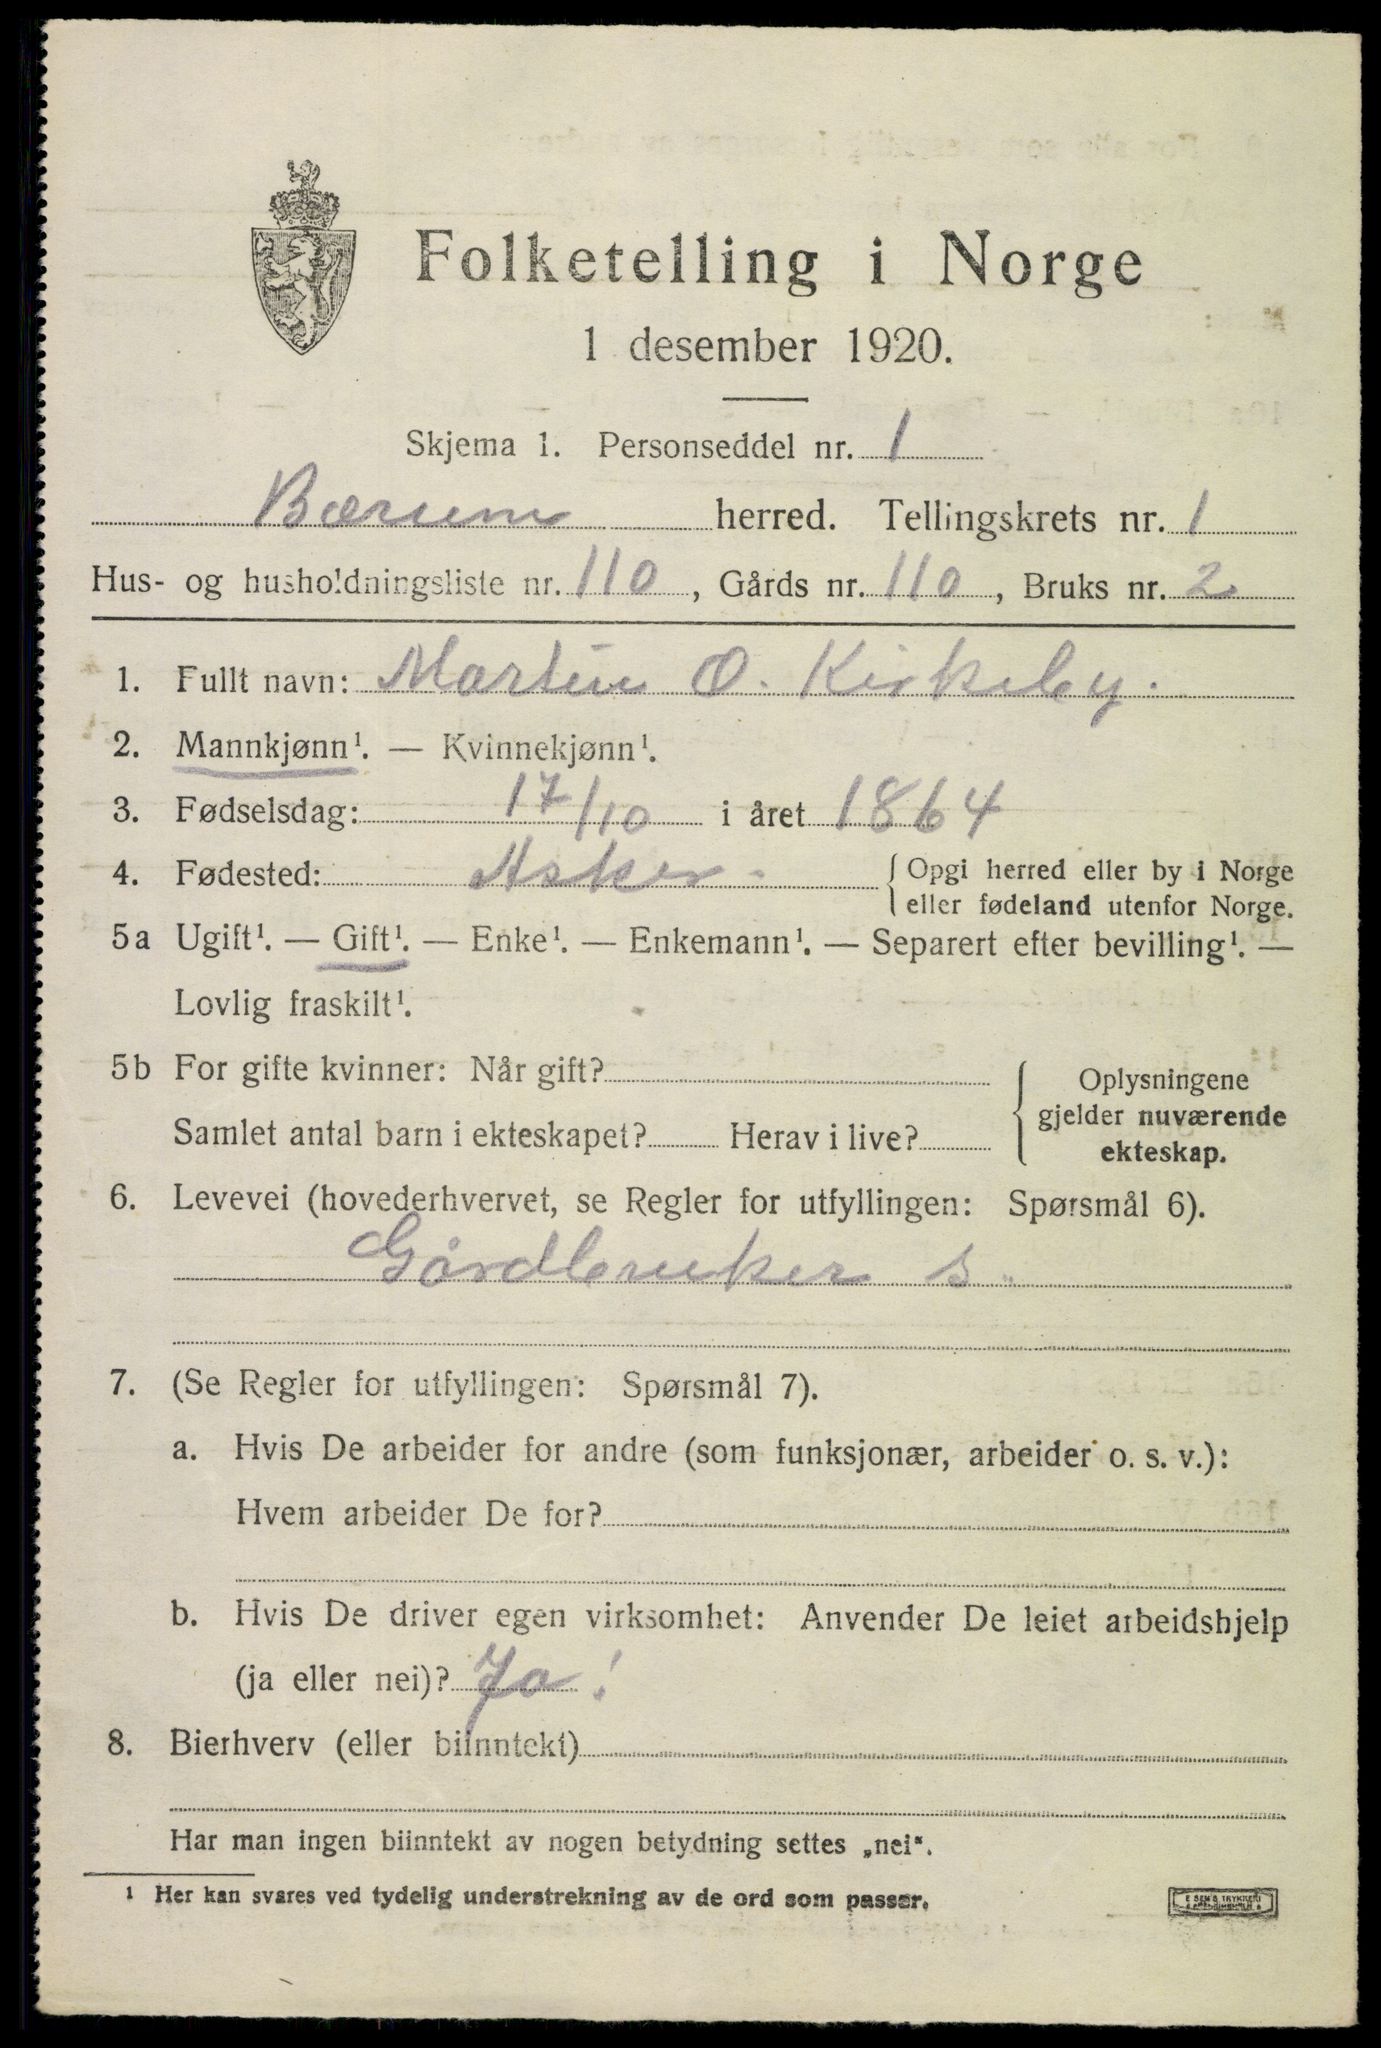 Folketelling i Norge
1 desember 1920.
Skjema 1. Personseddel nr. 1
Bærum herred. Tellingskrets nr. 1
Hus- og husholdningsliste nr. 110, Gårds nr. 110, Bruks nr. 2
1. Fullt navn: Martin O. Kirkeby.
2. Mannkjønn¹. — Kvinnekjønn¹.
3. Fødselsdag: 17/10 i året 1864
4. Fødested: Asker. { Opgi herred eller by i Norge
eller fødeland utenfor Norge.
5a Ugift¹. — Gift¹. — Enke¹. — Enkemann¹. — Separert efter bevilling¹. —
Lovlig fraskilt¹.
5b For gifte kvinner: Når gift? { Oplysningene
gjelder nuværende
Samlet antal barn i ekteskapet? Herav i live?
ekteskap.
6. Levevei (hovederhvervet, se Regler for utfyllingen: Spørsmål 6).
Gårdbruker s.
7. (Se Regler for utfyllingen: Spørsmål 7).
a. Hvis De arbeider for andre (som funksjonær, arbeider o. s. v.):
Hvem arbeider De for?
b. Hvis De driver egen virksomhet: Anvender De leiet arbeidshjelp
(ja eller nei)? Ja!
8. Bierhverv (eller biinntekt)
Har man ingen biinntekt av nogen betydning settes „nei".
¹ Her kan svares ved tydelig understrekning av de ord som passer.